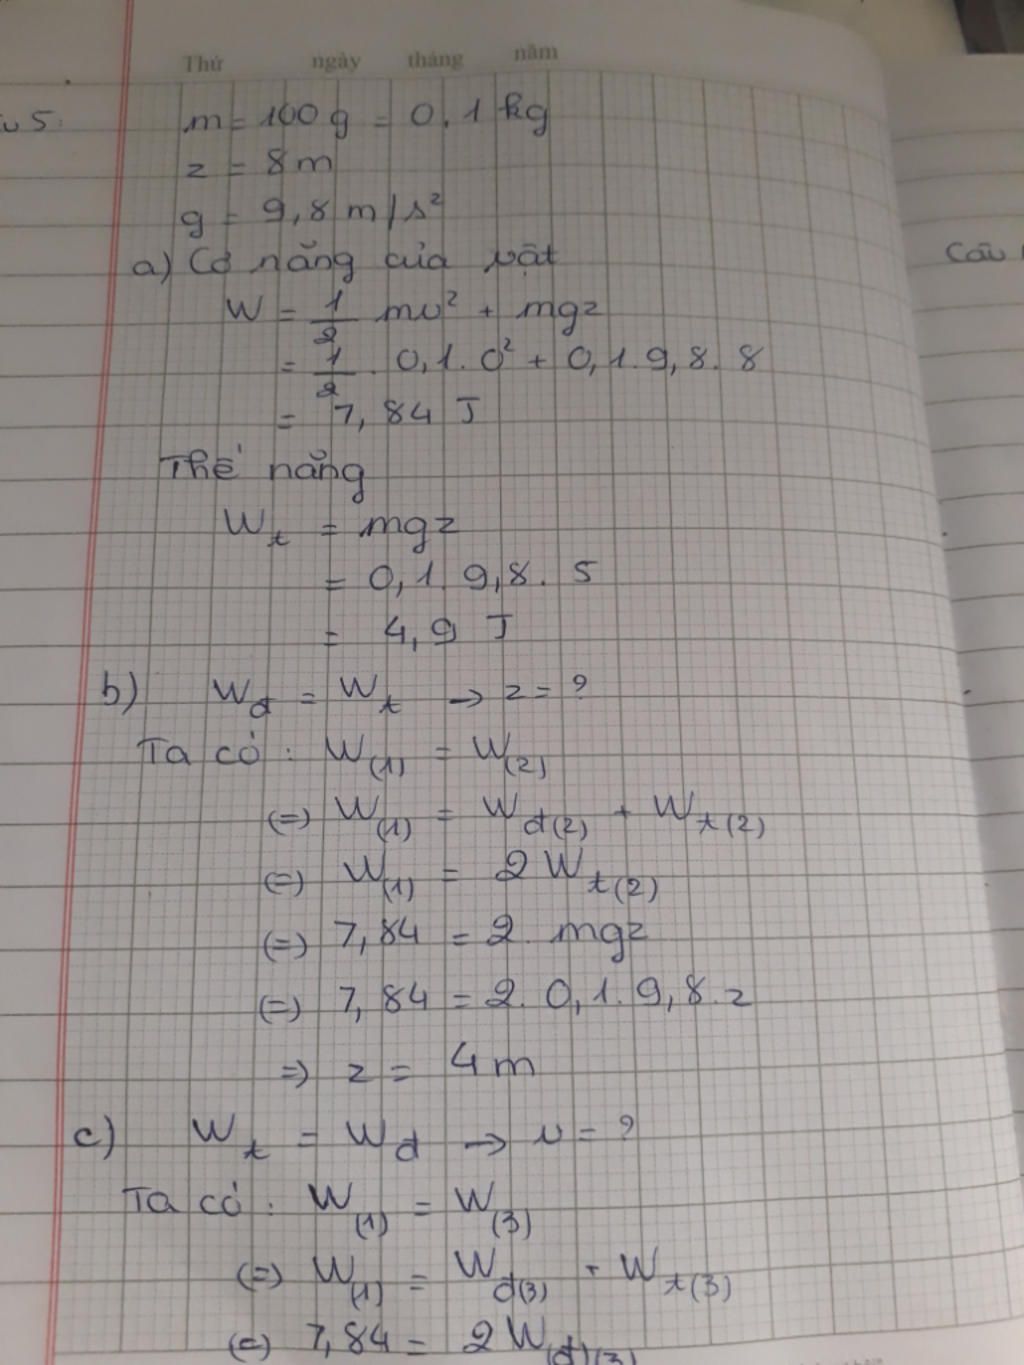 Thứ ngày tháng năm
u 5:
m = 100 g = 0,1 kg
z = 8 m
g = 9,8 m/s²
a) Cơ năng của vật
W = 1/2 mv² + mgz
= 1/2 . 0,1. 0² + 0,1. 9,8. 8
= 7,84 J
Thế năng
Wt = mgz
= 0,1 9,8. 5
= 4,9 J
b) Wđ = Wt → z = ?
Ta có : W(1) = W(2)
(=) W(1) = Wđ(2) + Wt(2)
(=) W(1) = 2 Wt(2)
(=) 7,84 = 2. mgz
(=) 7,84 = 2. 0,1. 9,8. z
=) z = 4 m
c) Wt = Wđ → v = ?
Ta có : W(1) = W(3)
(=) W(1) = Wđ(3) + Wt(3)
(=) 7,84 = 2 W(đ)(3)
Câu